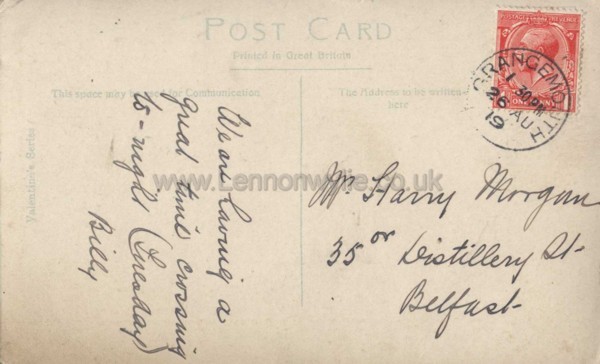 POST CARD
Printed in Great Britain.
This space may be used for Communication
The Address to be written
here
Valentine's Series
We are having a
great time crossing
to-night (Tuesday)
Billy
POSTAGE REVENUE
ONE PENNY
GRANGEMOUTH
1.30PM
26 AU
19
www.Lennonwylie.co.uk
Mr Harry Morgan
35 Distillery St.
Belfast